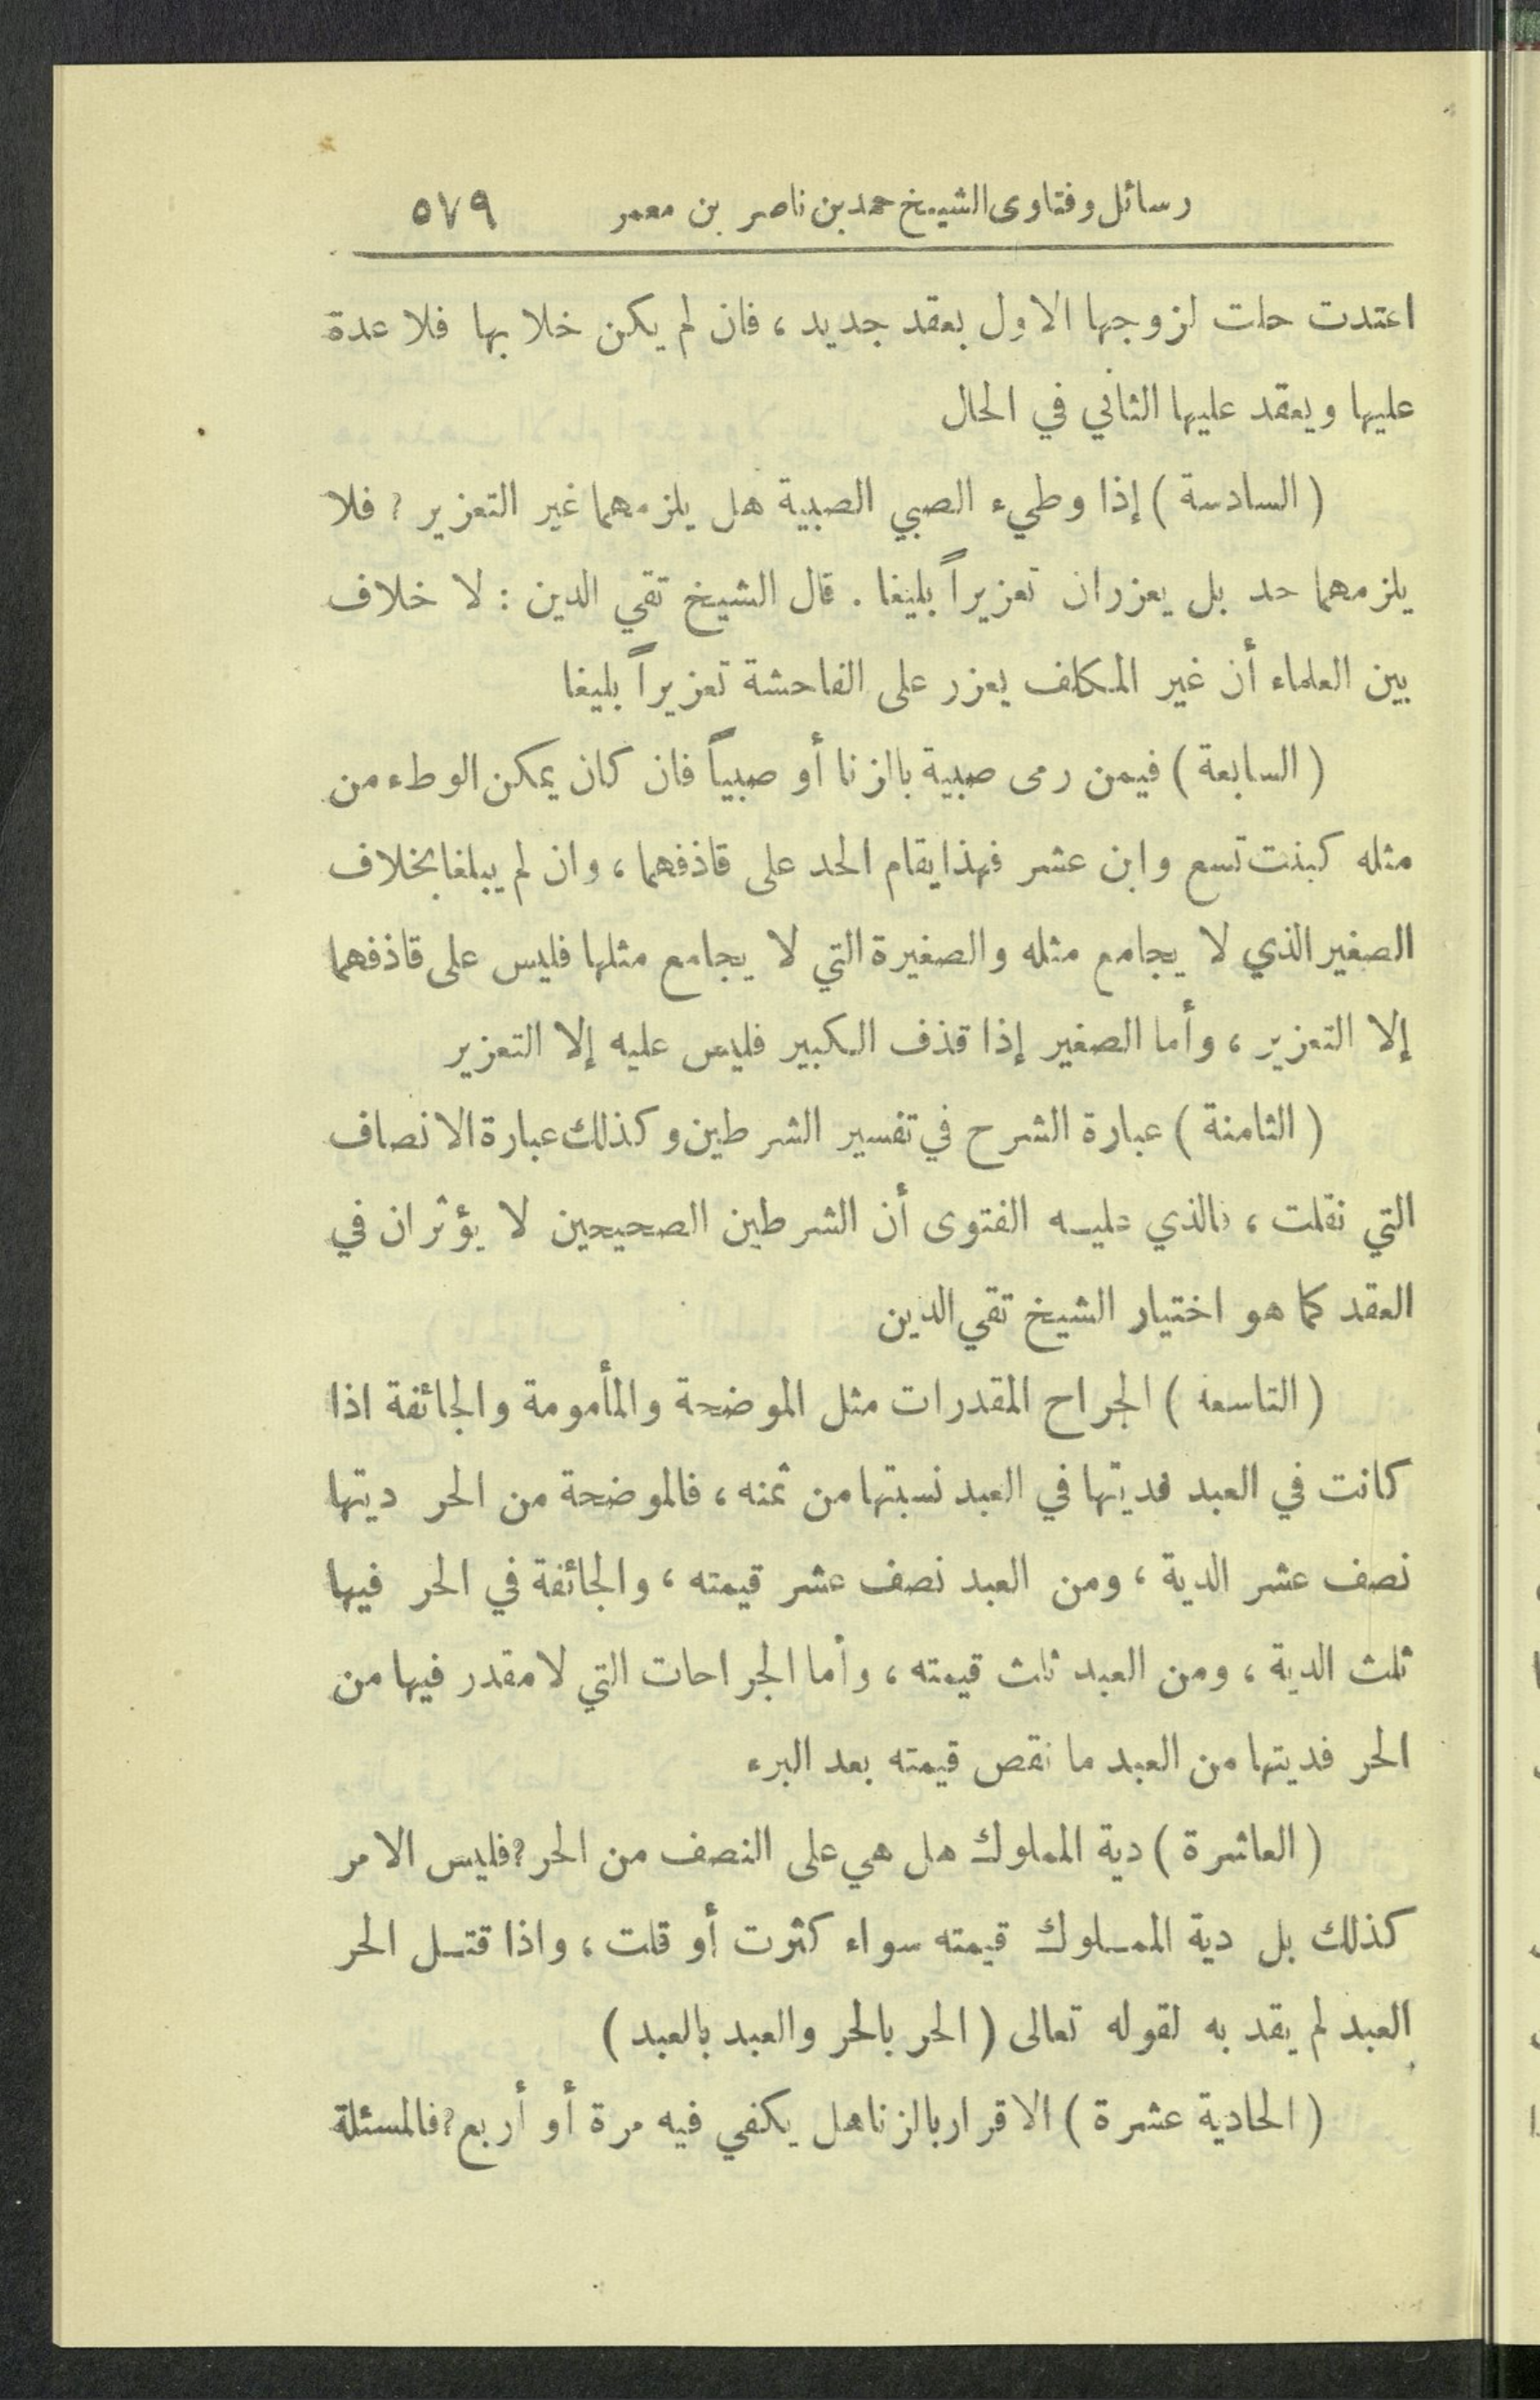 رسائل وفتاوى الشيخ حمد بن ناصر بن معمر ٥٧٩
اعتدت حلت لزوجها الاول بعقد جديد ، فان لم يكن خلا بها فلا عدة
عليها ويعقد عليها الثاني في الحال
( السادسة ) إذا وطيء الصبي الصبية هل يلزمهما غير التعزير ؟ فلا
يلزمهما حد بل يعزران تعزيراً بليغا . قال الشيخ تقي الدين : لا خلاف
بين العلماء أن غير المكلف يعزر على الفاحشة تعزيراً بليغا
( السابعة ) فيمن رمى صبية بالزنا أو صبياً فان كان يمكن الوطء من
مثله كبنت تسع وابن عشر فهذا يقام الحد على قاذفهما ، وان لم يبلغا بخلاف
الصغير الذي لا يجامع مثله والصغيرة التي لا يجامع مثلها فليس على قاذفهما
إلا التعزير ، وأما الصغير إذا قذف الكبير فليس عليه إلا التعزير
( الثامنة ) عبارة الشرح في تفسير الشرطين وكذلك عبارة الانصاف
التي نقلت ، فالذي عليه الفتوى أن الشرطين الصحيحين لا يؤثران في
العقد كما هو اختيار الشيخ تقي الدين
( التاسعة ) الجراح المقدرات مثل الموضحة والمأمومة والجائفة اذا
كانت في العبد فديتها في العبد نسبتها من ثمنه ، فالموضحة من الحر ديتها
نصف عشر الدية ، ومن العبد نصف عشر قيمته ، والجائفة في الحر فيها
ثلث الدية ، ومن العبد ثلث قيمته ، وأما الجراحات التي لا مقدر فيها من
الحر فديتها من العبد ما نقص قيمته بعد البرء
( العاشرة ) دية المملوك هل هي على النصف من الحر ؟ فليس الامر
كذلك بل دية المملوك قيمته سواء كثرت أو قلت ، واذا قتل الحر
العبد لم يقد به لقوله تعالى ( الحر بالحر والعبد بالعبد )
( الحادية عشرة ) الاقرار بالزنا هل يكفي فيه مرة أو أربع ؟ فالمسئلة